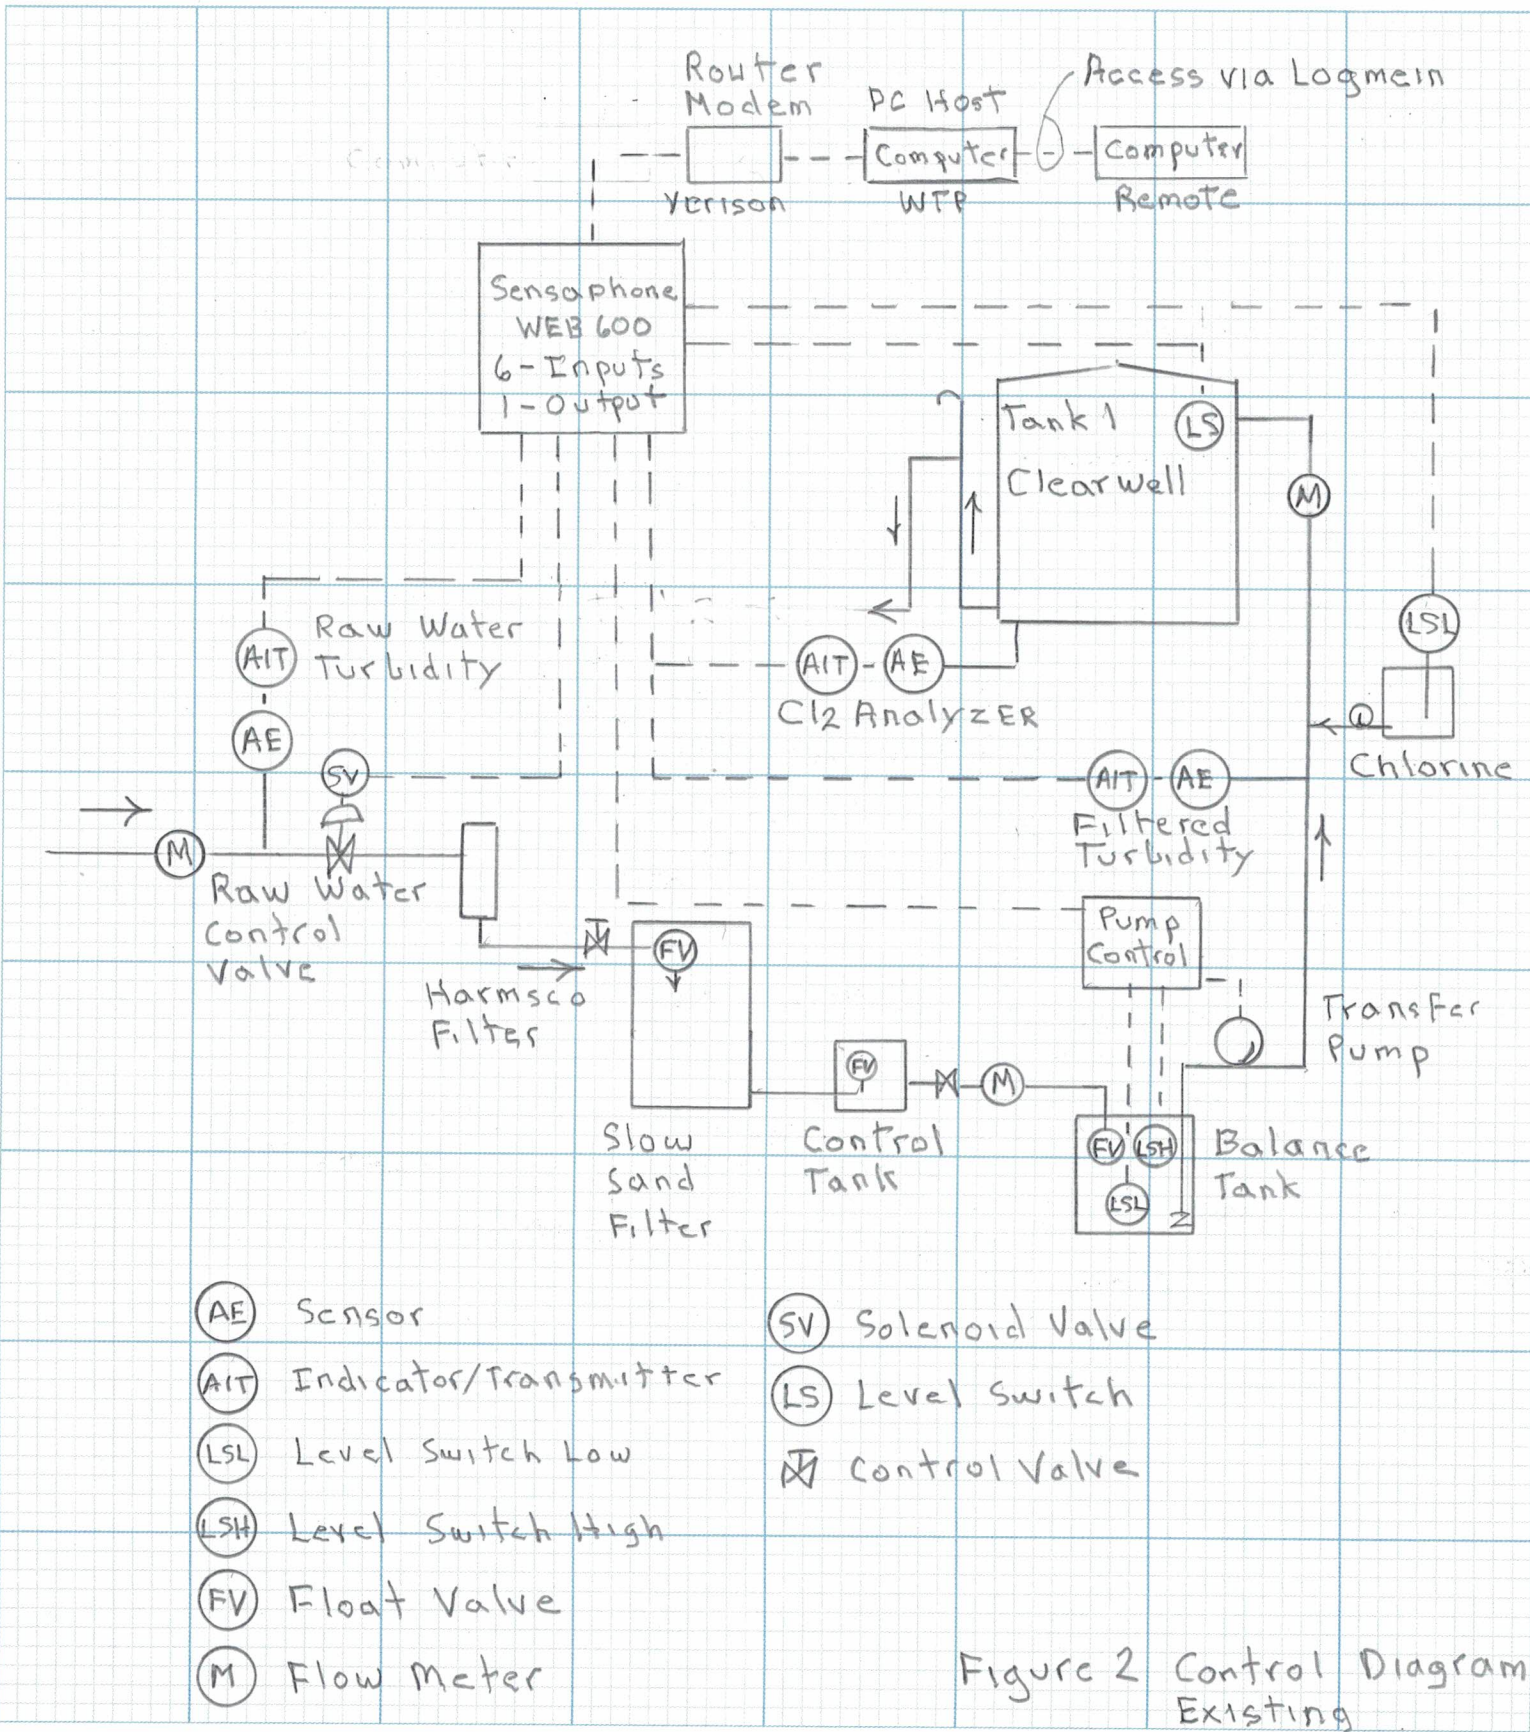 Router
Modem
PC Host
Access via Logmein
Computer
Computer
Verison
WTP
Remote
Sensaphone
WEB 600
6-Inputs
1-Output
Tank 1
LS
Clearwell
M
LSL
Raw Water
Turbidity
AIT
AIT
AE
Cl2 AnalyzER
AE
SV
Chlorine
AIT
AE
Filtered
Turbidity
M
Raw Water
Control
Valve
Pump
Control
FV
Harmsco
Filter
Transfer
Pump
FV
M
Slow
Sand
Filter
Control
Tank
FV
LSH
LSL
Balance
Tank
AE Sensor
AIT Indicator/Transmitter
LSL Level Switch Low
LSH Level Switch High
FV Float Valve
M Flow Meter
SV Solenoid Valve
LS Level Switch
Control Valve
Figure 2 Control Diagram
Existing